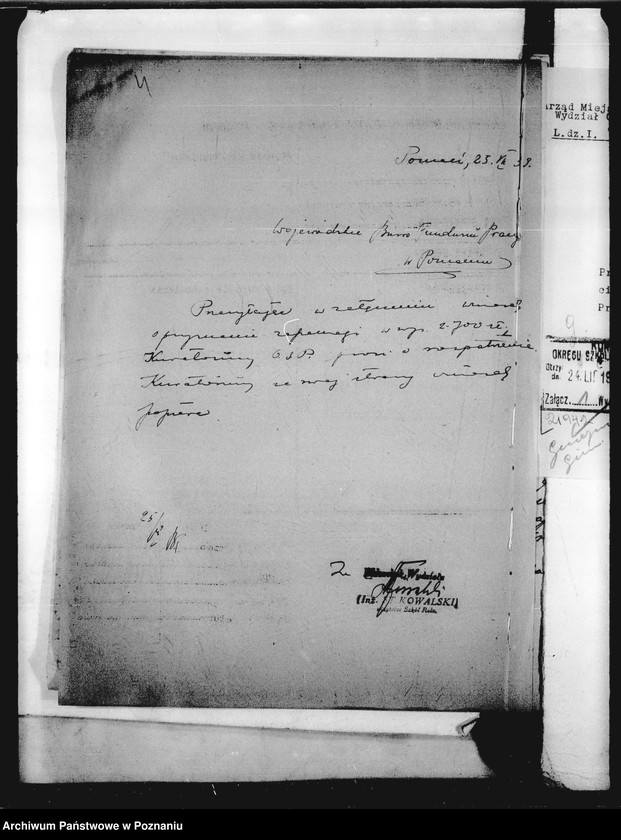 Poznań, 25. VII 38.
Wojewódzkie Biuro Funduszu Pracy
w Poznaniu
Przesyłając w załączeniu wniosek
o przyznanie zapomogi w wys. 2.700 zł,
Kuratorium O.S.P. prosi o rozpatrzenie.
Kuratorium ze swej strony wniosek
popiera
25/
Za Wydziału
(Inż. ST. KOWALSKI)
Szkół Roln.
arząd Miej
Wydział
L.dz.I.
Pr
ci
Pr
9
KUR
OKRĘGU SZKOL
Otrzy
dn. 24. LIP 19
Załącz. 1 Wy
21941
Archiwum Państwowe w Poznaniu